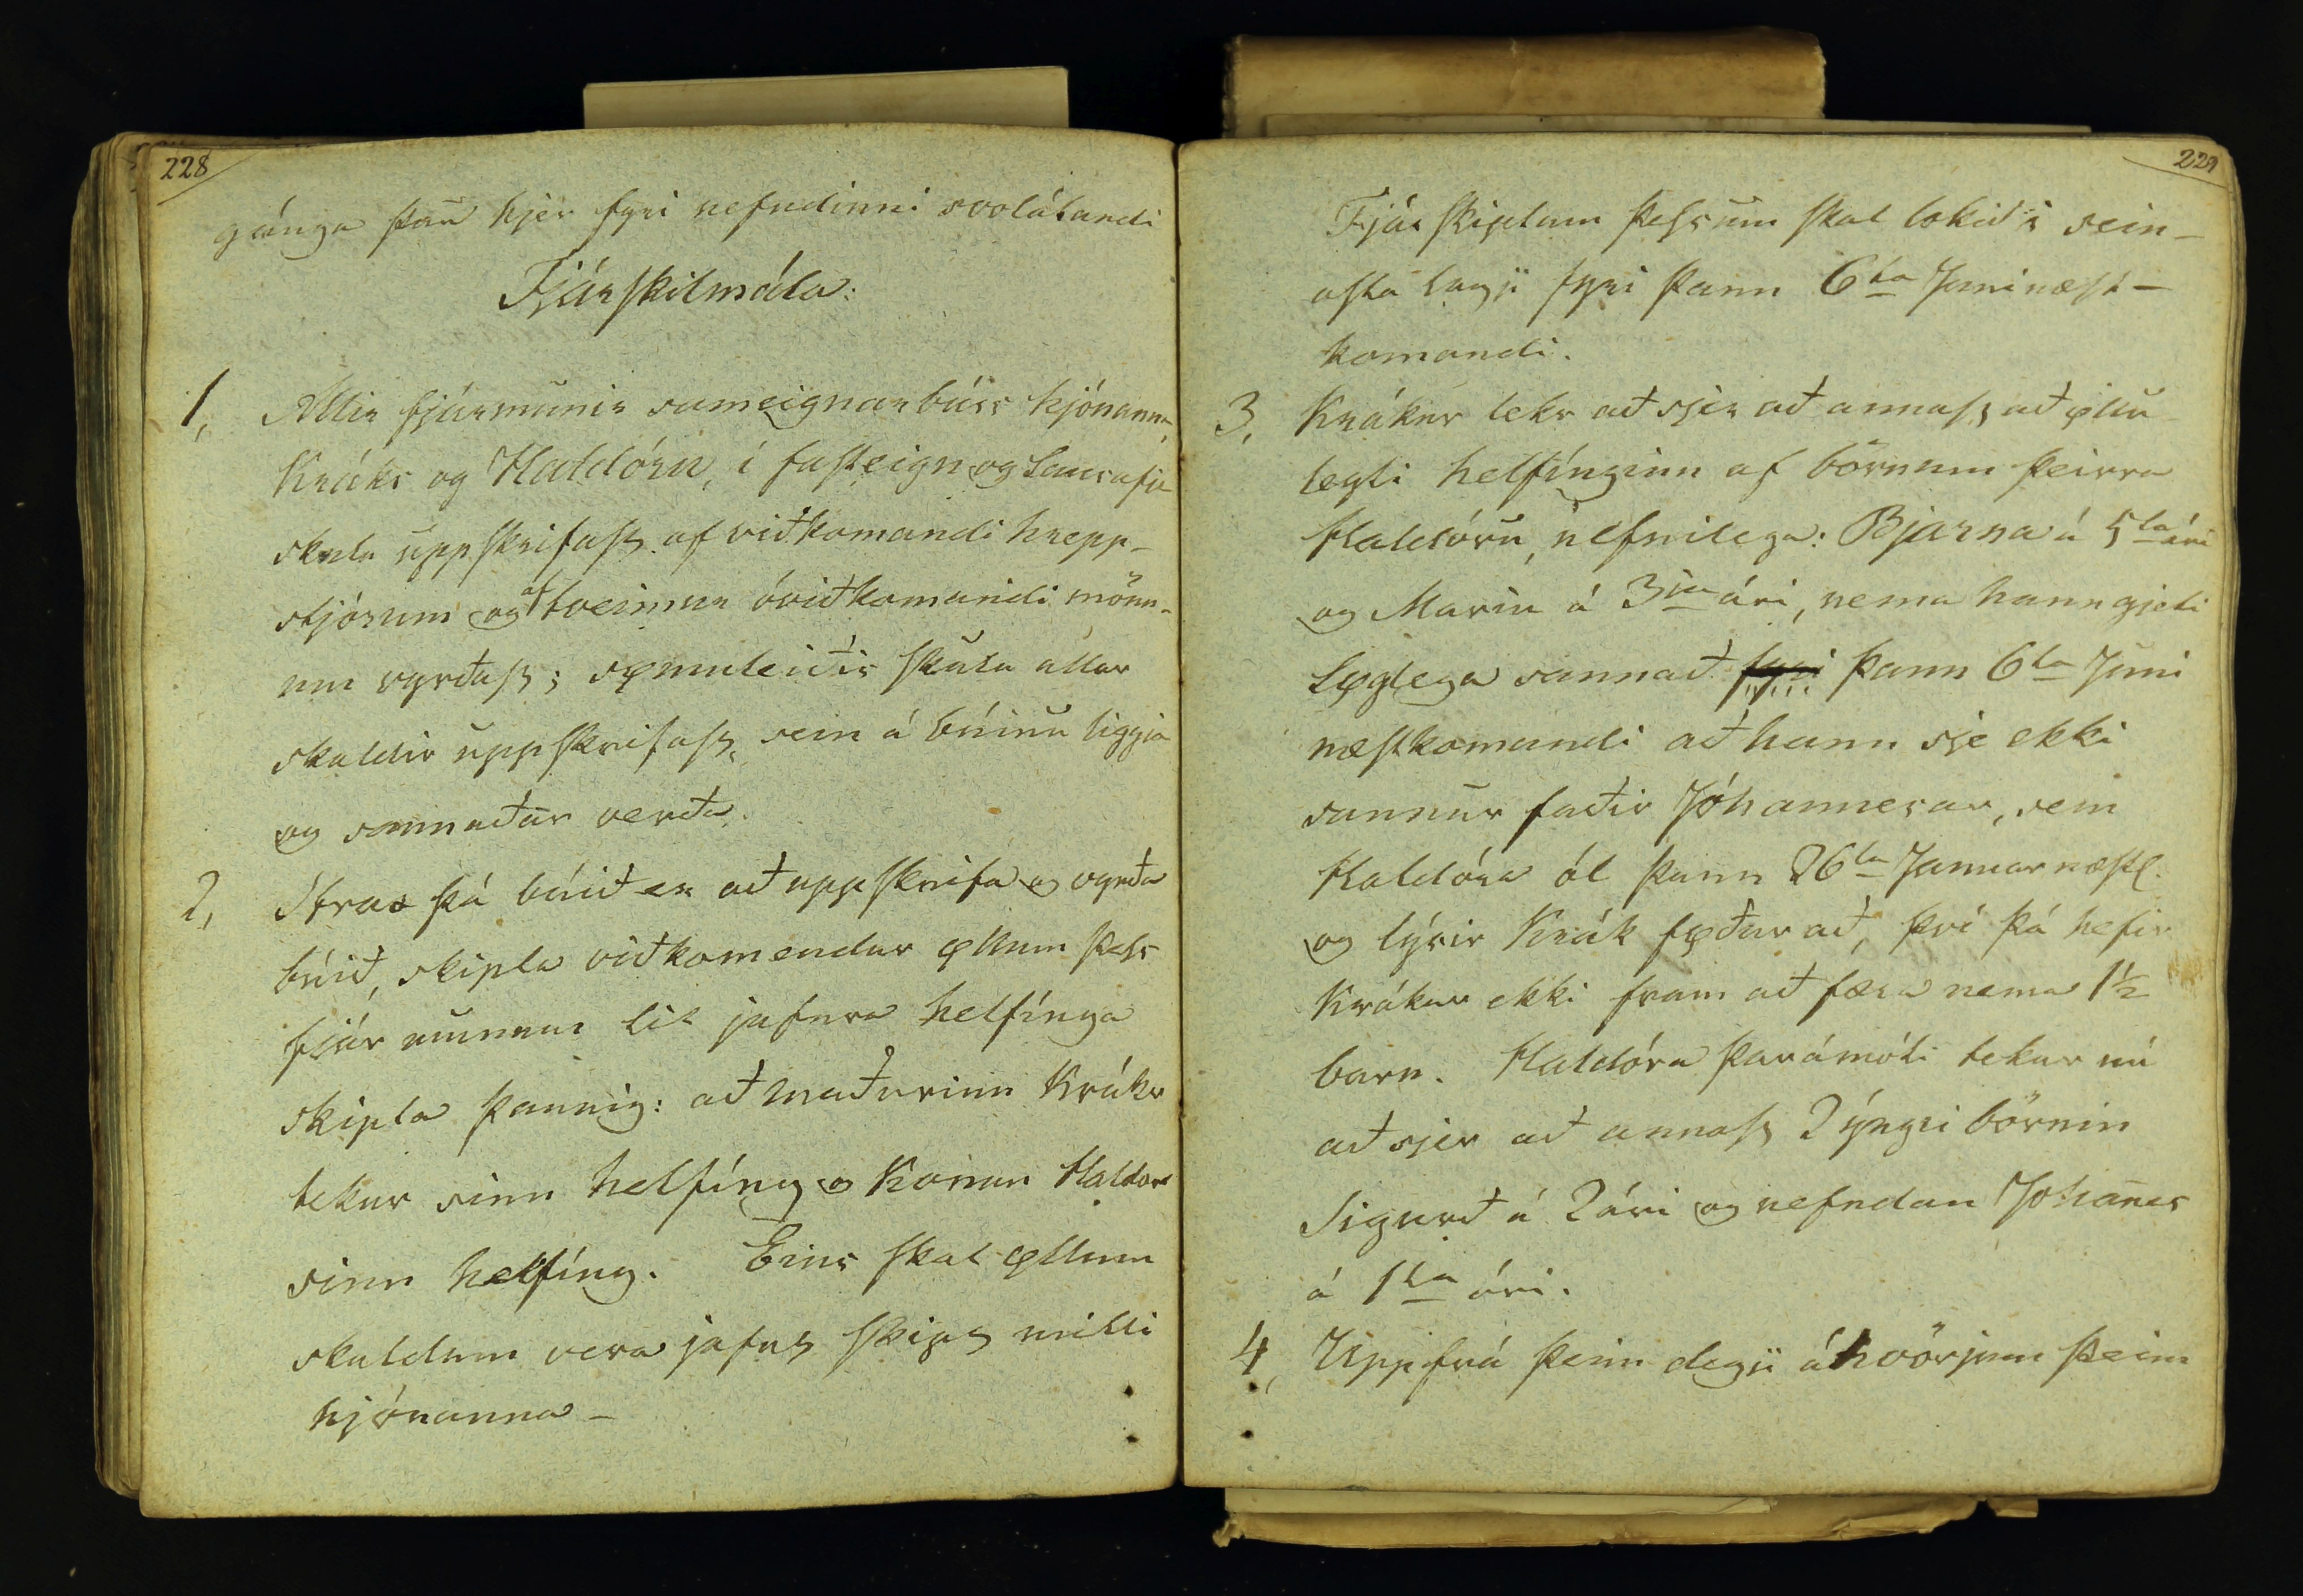 228
gánga þau hjer fyri nefndinni svolátandi
Fjárskilmála:
1, Allir fjármunir sameignarbúss hjónanna,
Kráks og Haldóru, í fasteign og Lausafje
skulu uppskrifast af viðkomandi hrepp-
stjórum og af tveimur óviðkomandi mönn-
um vyrðast; sømuleiðis skulu allar
skuldir uppskrifast, sem á búinu liggja
og sannaðar verða.
2, Strax þá búið er að uppskrifa og vyrða
búið, skipta viðkomendur øllum þess
fjármunum til jafnra helfínga
skipta þannig: að maðurinn Krákr
tekur sinn helfíng og Konan Haldóra
sinn helfíng. Eins skal øllum
skuldum vera jafnt skipt milli
hjónanna –
229
Fjárskiptum þessum skal lokið í sein-
asta lagi fyri þann 6ta Juni næst-
komandi.
3, Krákur tekr að sjer að annast að øllu
legti helfínginn af börnum þeirra
Haldóru, nefnilega: Bjarna á 5ta ári
og Maríu á 3ja ári, nema hann gjeti
Løglega sannað fyri þann 6ta Juni
næstkomandi að hann sje ekki
sannur faðir Jóhannesar, sem
Haldóra ól þann 26ta Januar næstl.
og lýsir Krák føður að, því þá hefir
Krákur ekki fram að færa nema 1½
barn. Haldóra þarámóti tekur nú
að sjer að annast 2 ýngri börnin
Sigurð á 2 ári og nefndan Johan̄es
á 1ta ári.
4, Upp frá þeim degi á hvörjum þeim